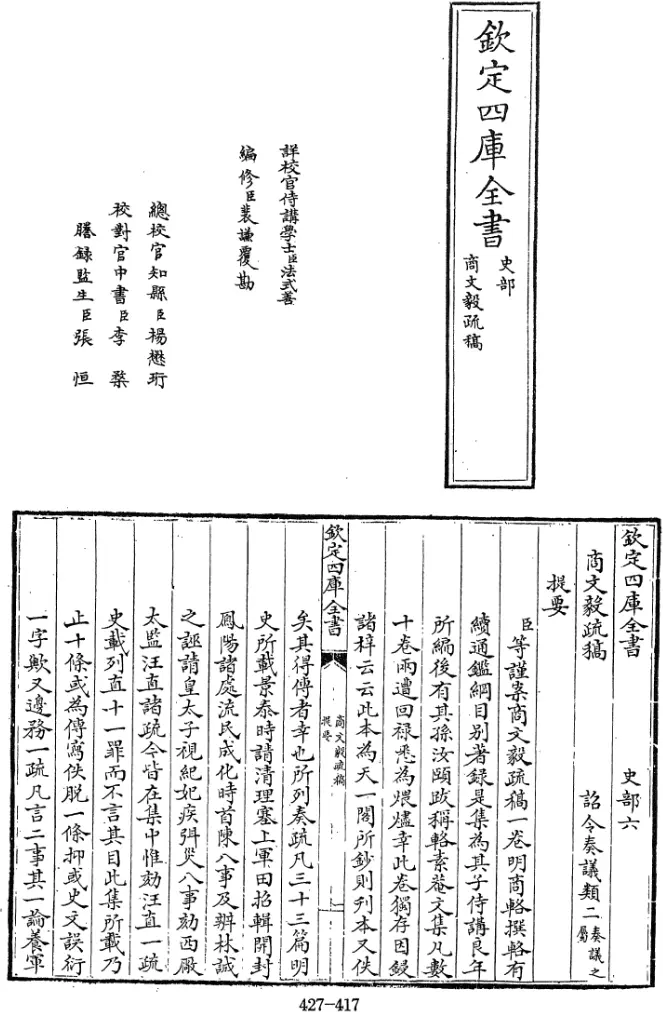 欽定四庫全書
史部
商文毅疏稿
詳校官侍講學士臣法式善
編修臣裴謙覆勘
總校官知縣臣楊懋珩
校對官中書臣李楘
謄錄監生臣張恒
欽定四庫全書
史部六
商文毅疏稿
詔令奏議類二奏議之屬
提要
臣等謹案商文毅疏稿一卷明商輅撰輅有
續通鑑綱目别著録是集為其子侍講良年
所編後有其孫汝頤跋稱輅素菴文集凡數
十卷兩遭回禄悉為煨燼幸此卷獨存因鋟
諸梓云云此本為天一閣所鈔則刋本又佚
欽定四庫全書
商文毅疏稿
提要
矣其得傳者幸也所列奏疏凡三十三篇明
史所載景泰時請清理塞上軍田招輯開封
鳳陽諸處流民成化時首陳八事及辨林誠
之誣請皇太子視紀妃疾弭災八事劾西厰
太監汪直諸疏今皆在集中惟劾汪直一疏
史載列直十一罪而不言其目此集所載乃
止十條或為傳寫佚脱一條抑或史文誤衍
一字歟又邊務一疏凡言二事其一論養軍
427-417